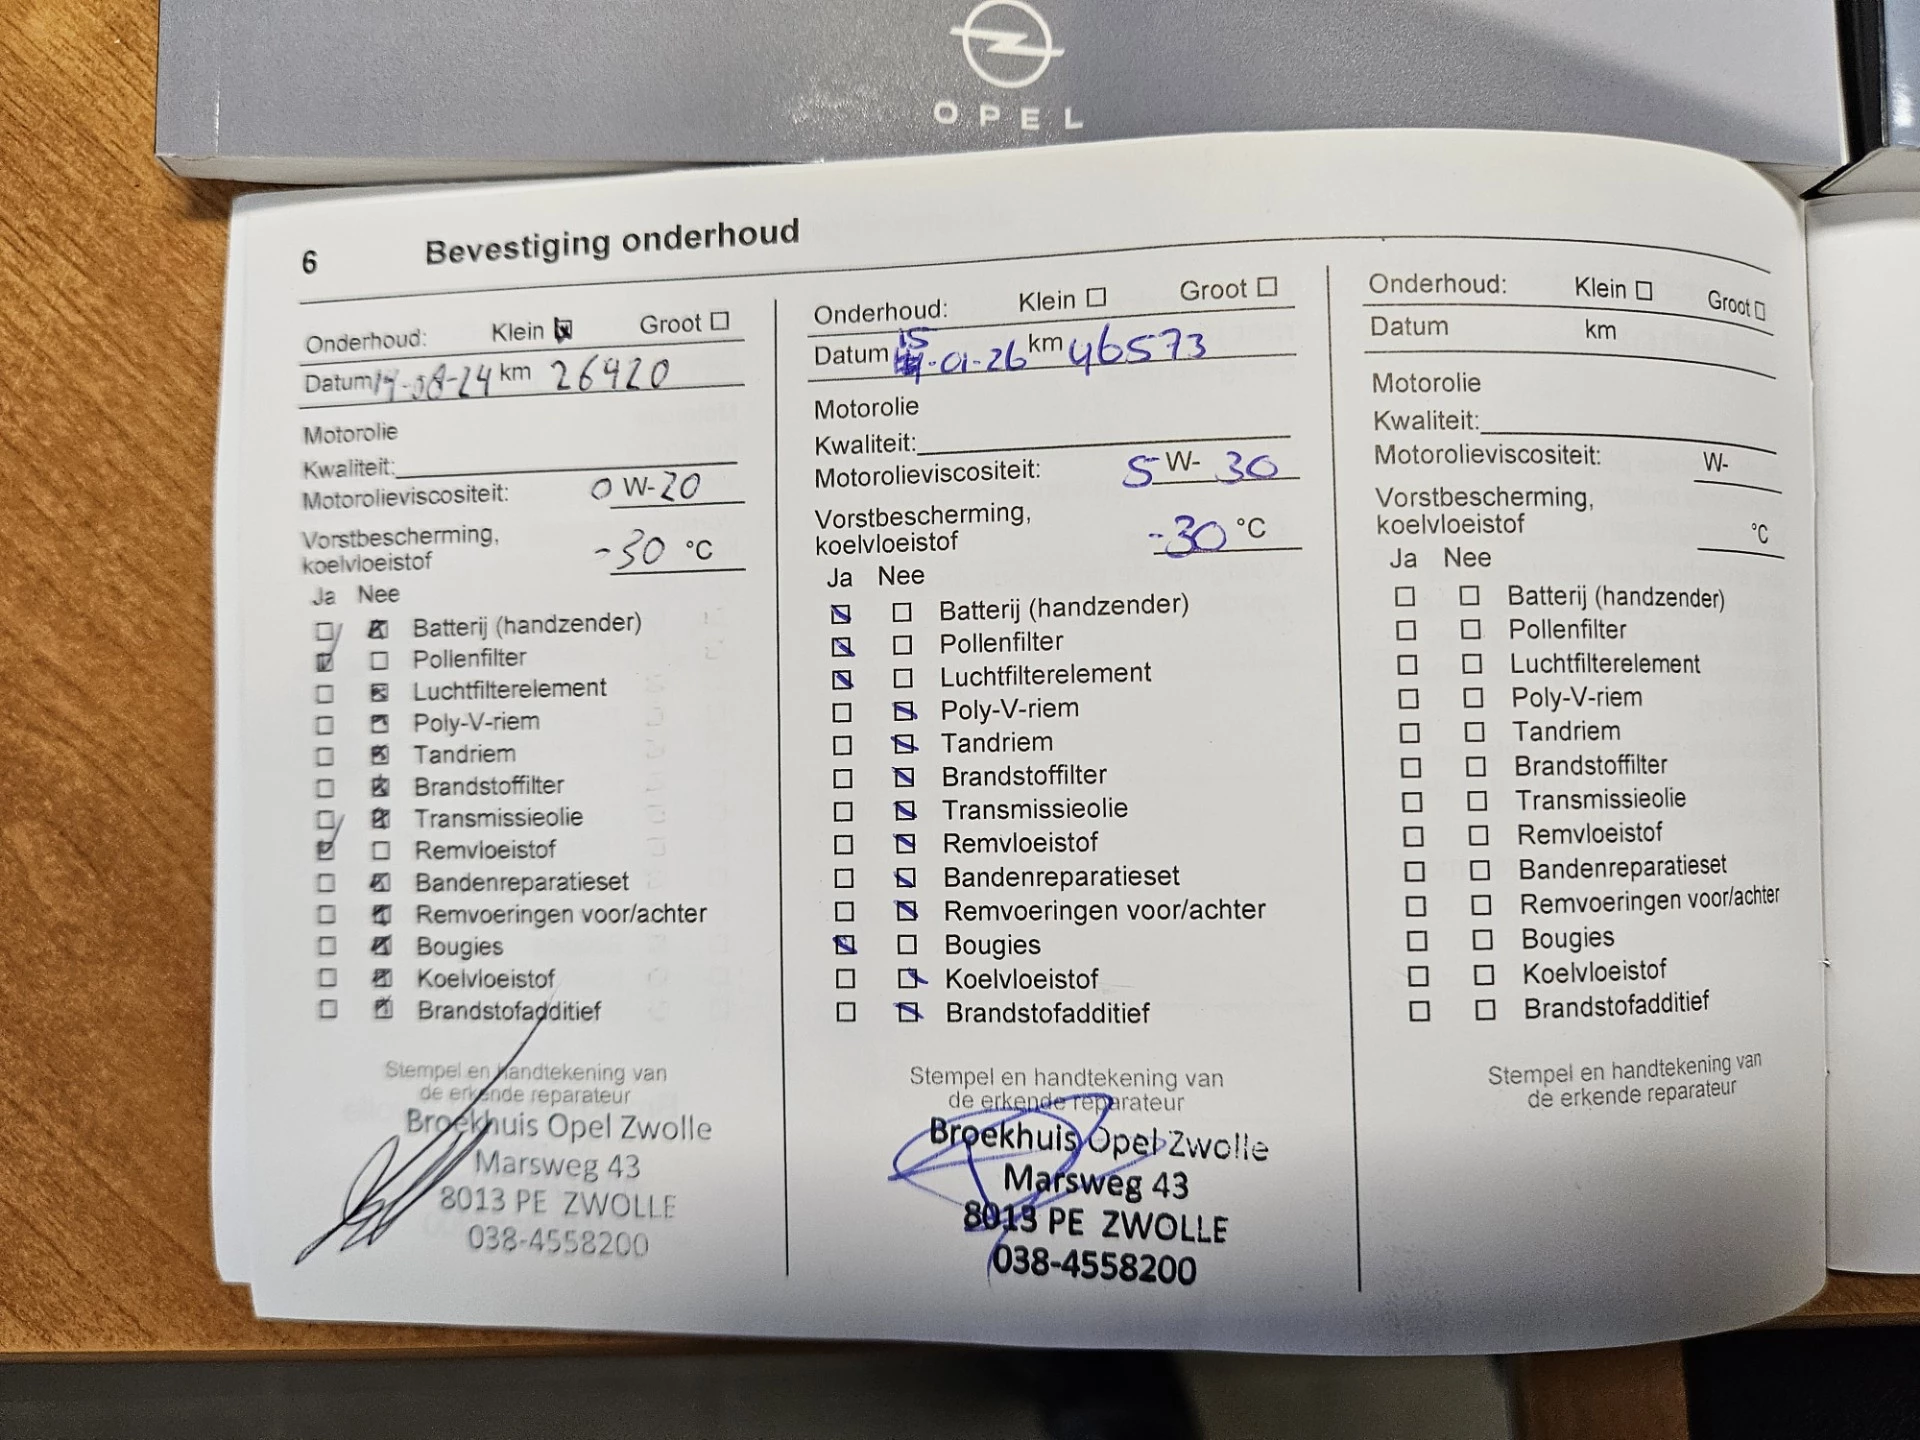 OPEL
6 Bevestiging onderhoud
Onderhoud: Klein Groot
Datum 14-08-24 km 26920
Motorolie
Kwaliteit:
Motorolieviscositeit: 0 W-20
Vorstbescherming,
koelvloeistof -30 °C
Ja Nee
Batterij (handzender)
Pollenfilter
Luchtfilterelement
Poly-V-riem
Tandriem
Brandstoffilter
Transmissieolie
Remvloeistof
Bandenreparatieset
Remvoeringen voor/achter
Bougies
Koelvloeistof
Brandstofadditief
Stempel en handtekening van
de erkende reparateur
Broekhuis Opel Zwolle
Marsweg 43
8013 PE ZWOLLE
038-4558200
Onderhoud: Klein Groot
Datum 15-01-26 km 46573
Motorolie
Kwaliteit:
Motorolieviscositeit: 5 W- 30
Vorstbescherming,
koelvloeistof -30 °C
Ja Nee
Batterij (handzender)
Pollenfilter
Luchtfilterelement
Poly-V-riem
Tandriem
Brandstoffilter
Transmissieolie
Remvloeistof
Bandenreparatieset
Remvoeringen voor/achter
Bougies
Koelvloeistof
Brandstofadditief
Stempel en handtekening van
de erkende reparateur
Broekhuis Opel Zwolle
Marsweg 43
8013 PE ZWOLLE
038-4558200
Onderhoud: Klein Groot
Datum km
Motorolie
Kwaliteit:
Motorolieviscositeit: W-
Vorstbescherming,
koelvloeistof °C
Ja Nee
Batterij (handzender)
Pollenfilter
Luchtfilterelement
Poly-V-riem
Tandriem
Brandstoffilter
Transmissieolie
Remvloeistof
Bandenreparatieset
Remvoeringen voor/achter
Bougies
Koelvloeistof
Brandstofadditief
Stempel en handtekening van
de erkende reparateur